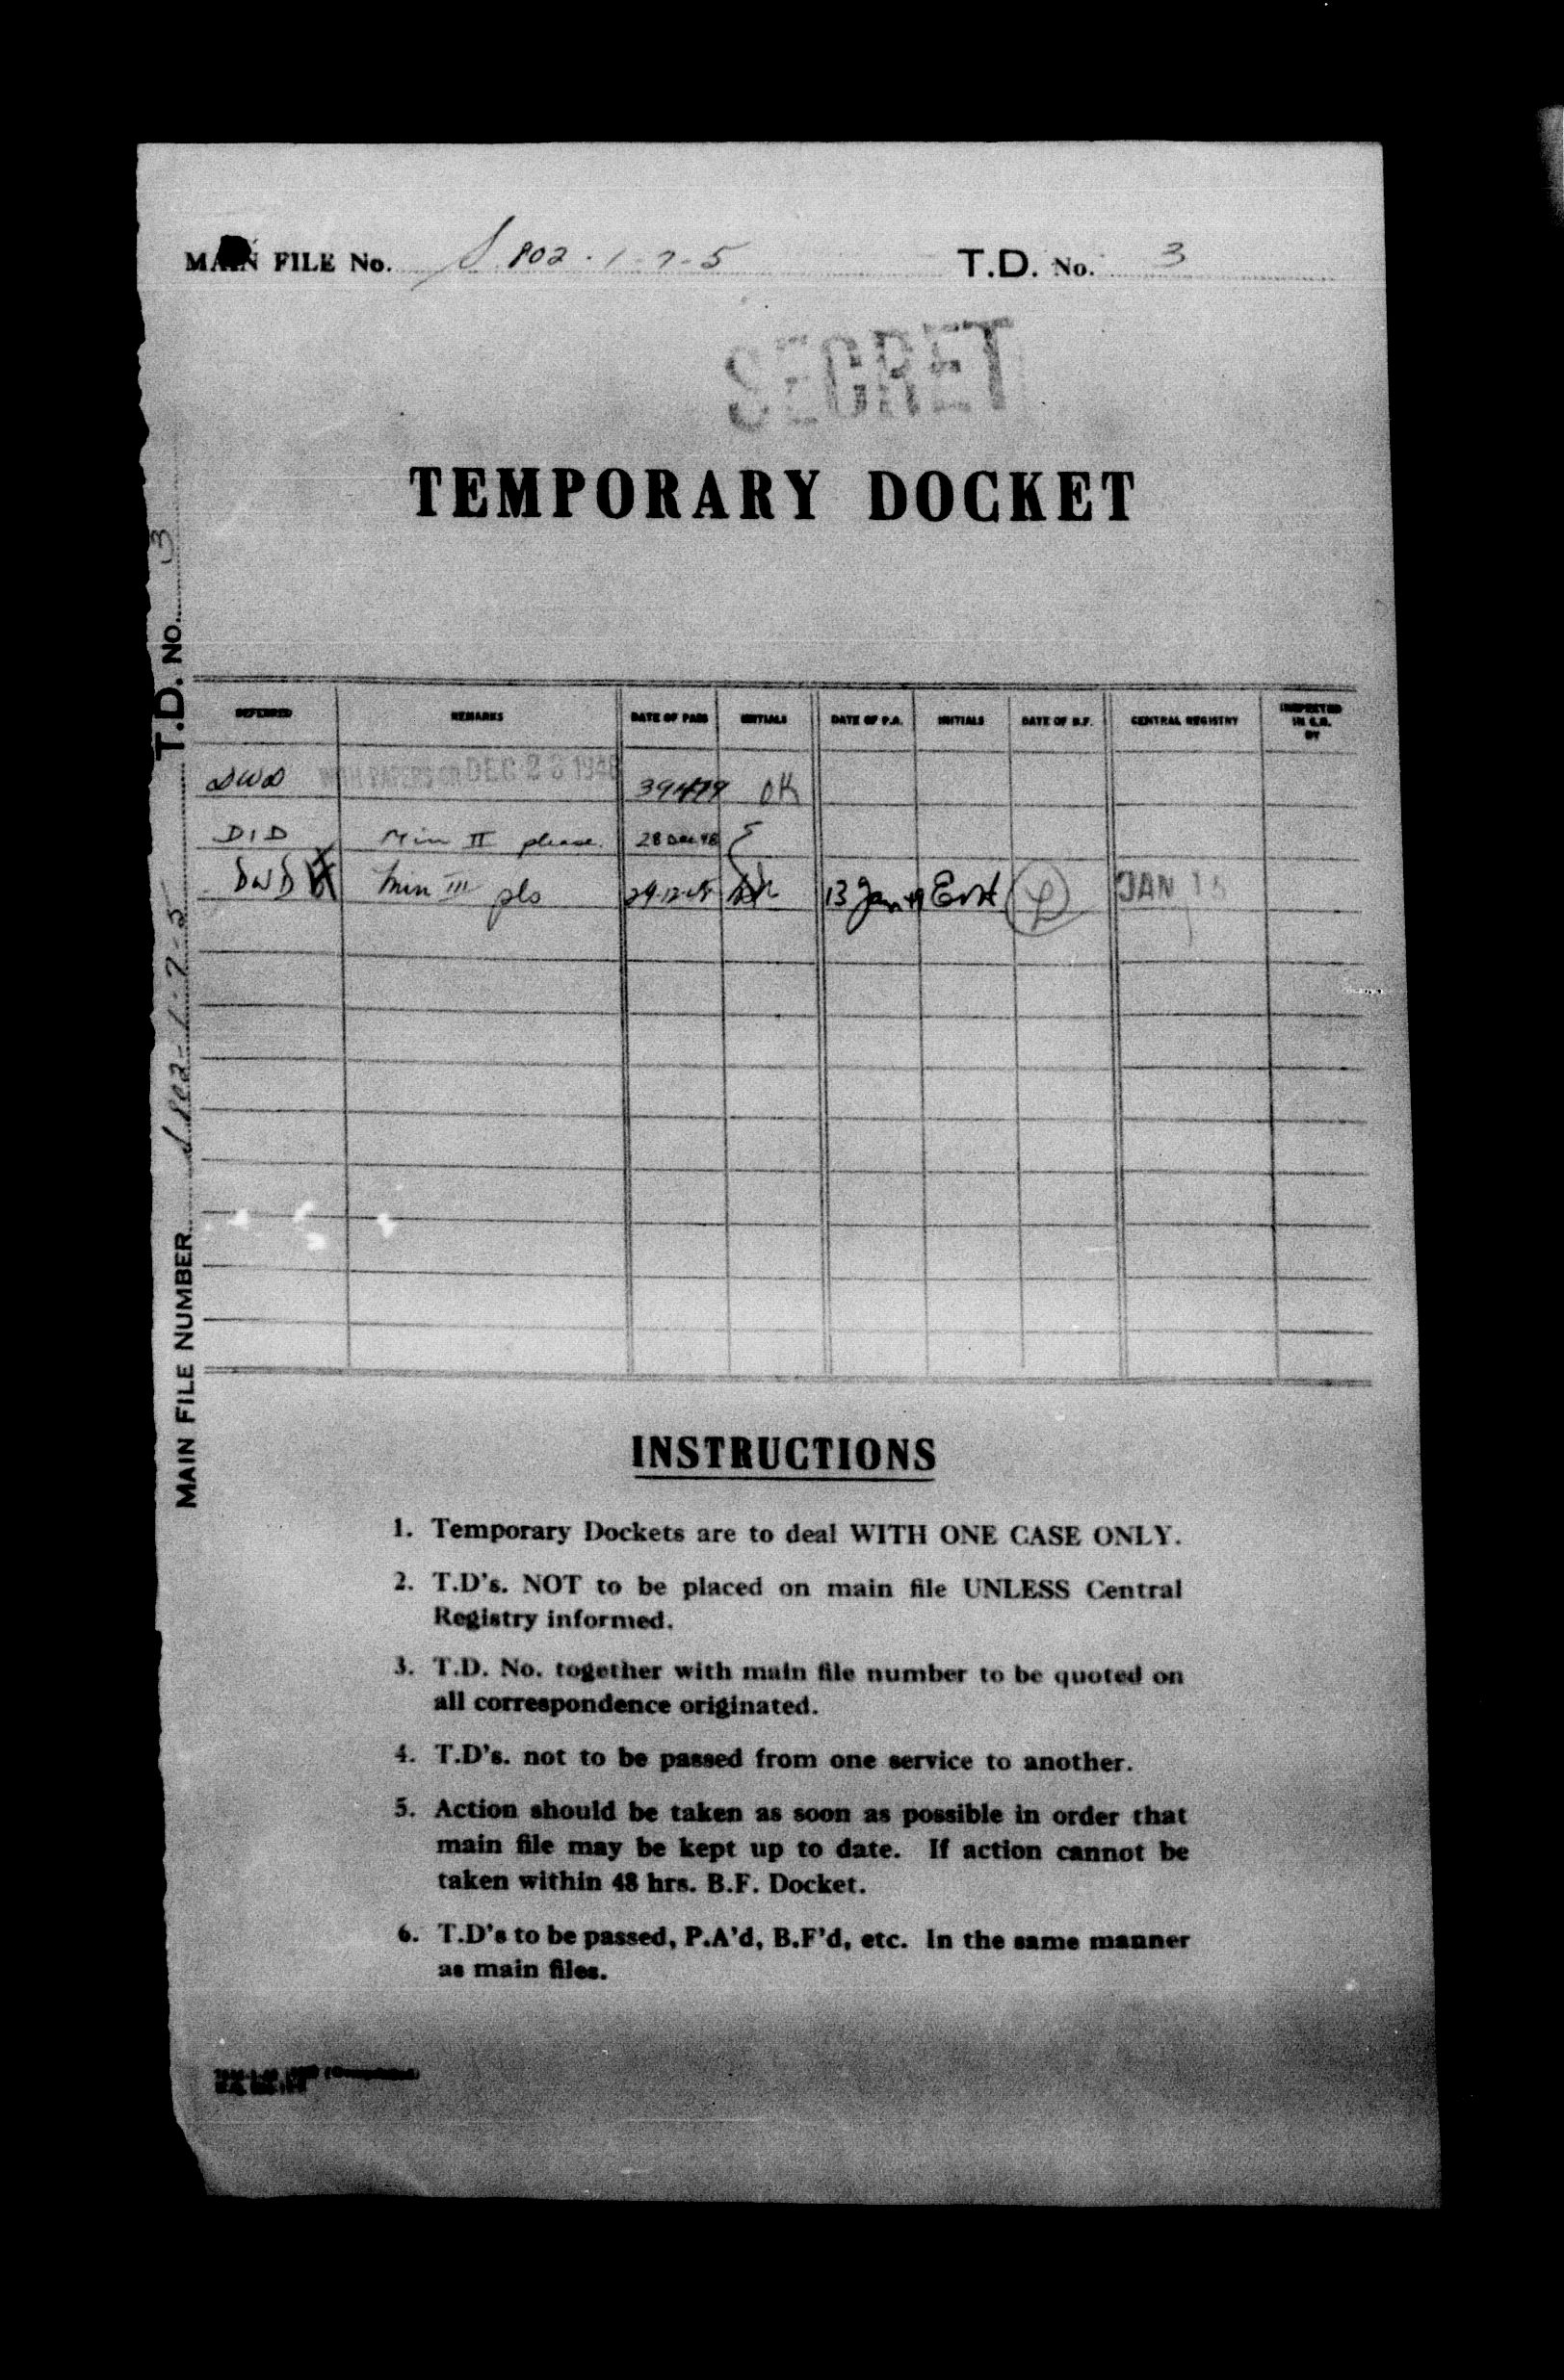 MAIN FILE No. S 802-1-7-5 T.D. No. 3
SECRET
TEMPORARY DOCKET
REFERRED REMARKS DATE OF PASS INITIALS DATE OF P.A. INITIALS DATE OF B.F. CENTRAL REGISTRY INSPECTED IN C.R. BY
DWD WITH PAPERS OR DEC 23 1948 OK
DID Min II please. 28 Dec 48
DWD Min III pls 13 Jan 49 JAN 15
MAIN FILE NUMBER S 802-1-7-5 T.D. No. 3
INSTRUCTIONS
1. Temporary Dockets are to deal WITH ONE CASE ONLY.
2. T.D's. NOT to be placed on main file UNLESS Central
Registry informed.
3. T.D. No. together with main file number to be quoted on
all correspondence originated.
4. T.D's. not to be passed from one service to another.
5. Action should be taken as soon as possible in order that
main file may be kept up to date. If action cannot be
taken within 48 hrs. B.F. Docket.
6. T.D's to be passed, P.A'd, B.F'd, etc. In the same manner
as main files.